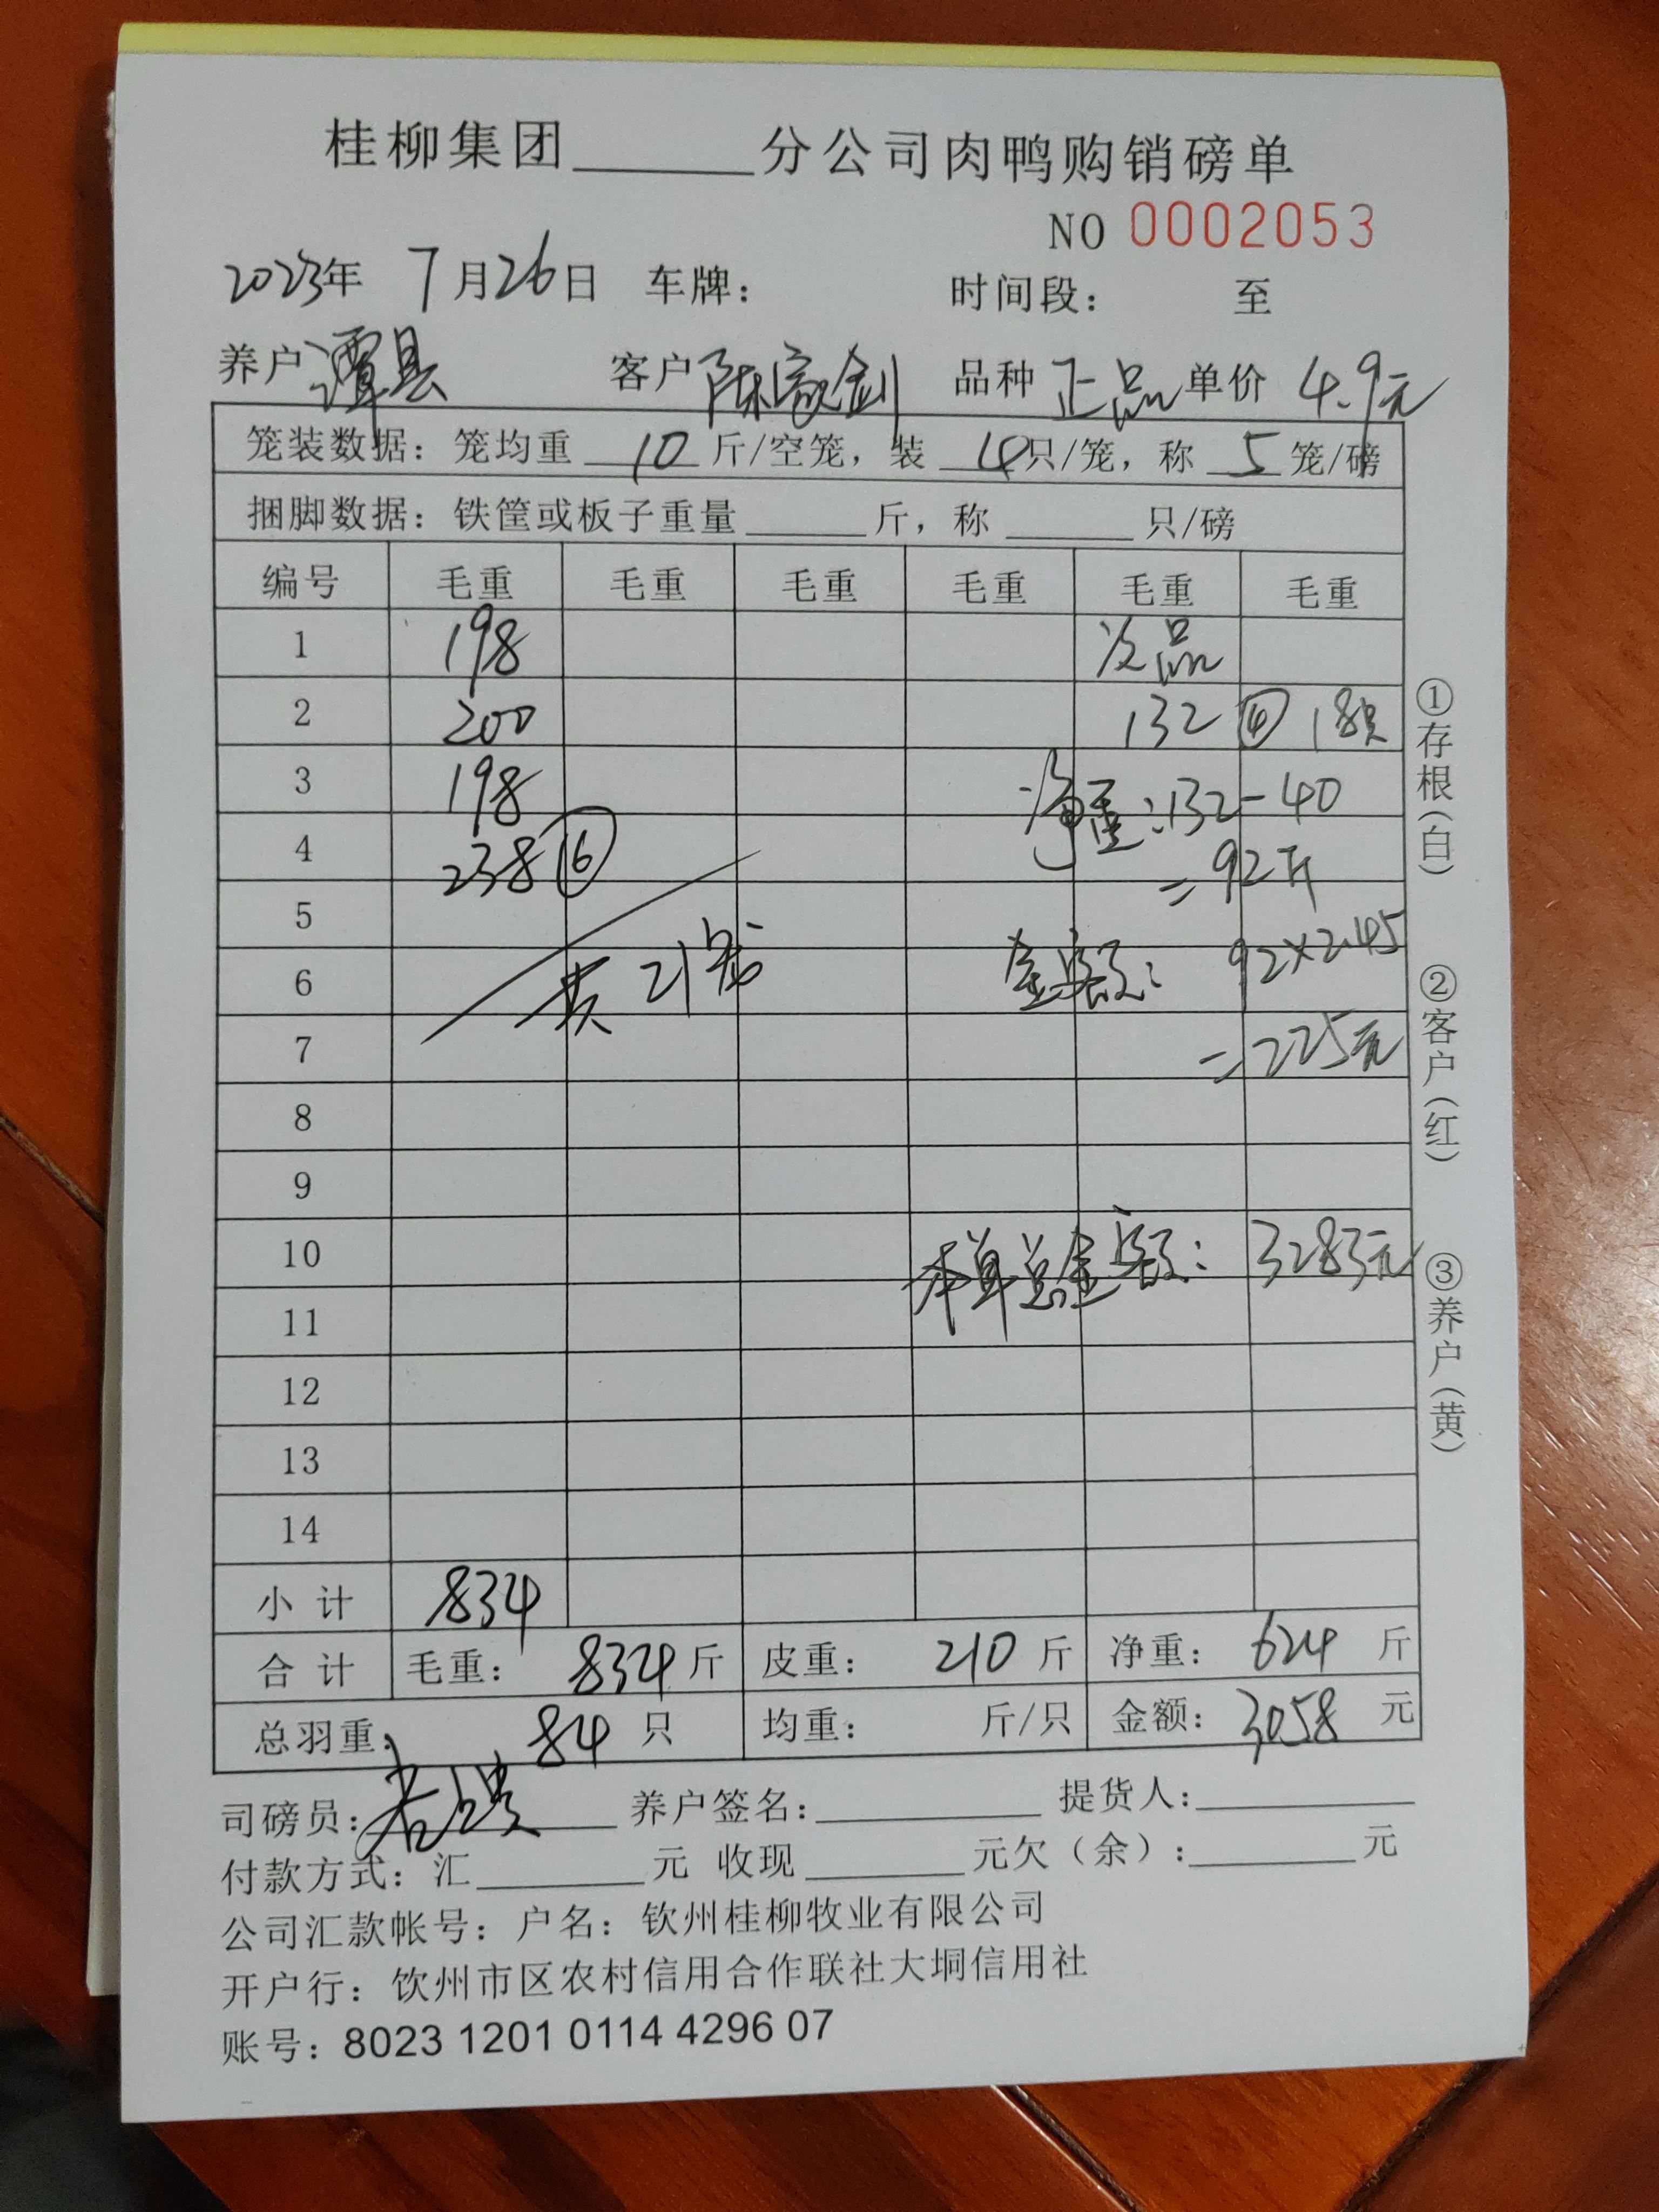 桂柳集团______分公司肉鸭购销磅单
NO 0002053
2023年 7月26日 车牌： 时间段： 至
养户 谭县 客户 陈家剑 品种 正品 单价 4.9元
笼装数据：笼均重 10 斤/空笼，装 4只/笼，称 5 笼/磅
捆脚数据：铁筐或板子重量______斤，称______只/磅
编号 毛重 毛重 毛重 毛重 毛重 毛重
1 198 次品
2 200 132 ④ 18只
3 198 净重：132-40
4 238 ⑥ =92斤
5
6 共21笼 金额：92×2.45
7 =225元
8
9
10 本单总金额：3283元
11
12
13
14
小计 834
合计 毛重：834斤 皮重：210斤 净重：624斤
总羽重：84只 均重： 斤/只 金额：3058元
司磅员： 养户签名：______ 提货人：______
付款方式：汇______元 收现______元欠（余）：______元
公司汇款帐号：户名：钦州桂柳牧业有限公司
开户行：钦州市区农村信用合作联社大垌信用社
账号：8023 1201 0114 4296 07
①存根（白）
②客户（红）
③养户（黄）